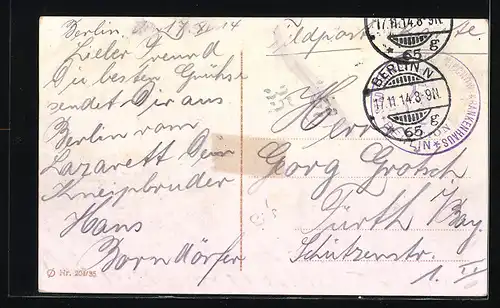 Berlin. 17 XI 14
Lieber Freund
Die besten Grüße
sendet Dir aus
Berlin vom
Lazarett Dein
Kneipbruder
Hans
Borndörfer
Ø Nr. 204/35
Feldpostkarte.
17.11.14.8-9N.
65 g
BERLIN N
17.11.14.8-9N.
g
65
KRANKENHAUS
Herrn
Georg Grotsch
Fürth i/Bay.
Schützenstr.
1. IV